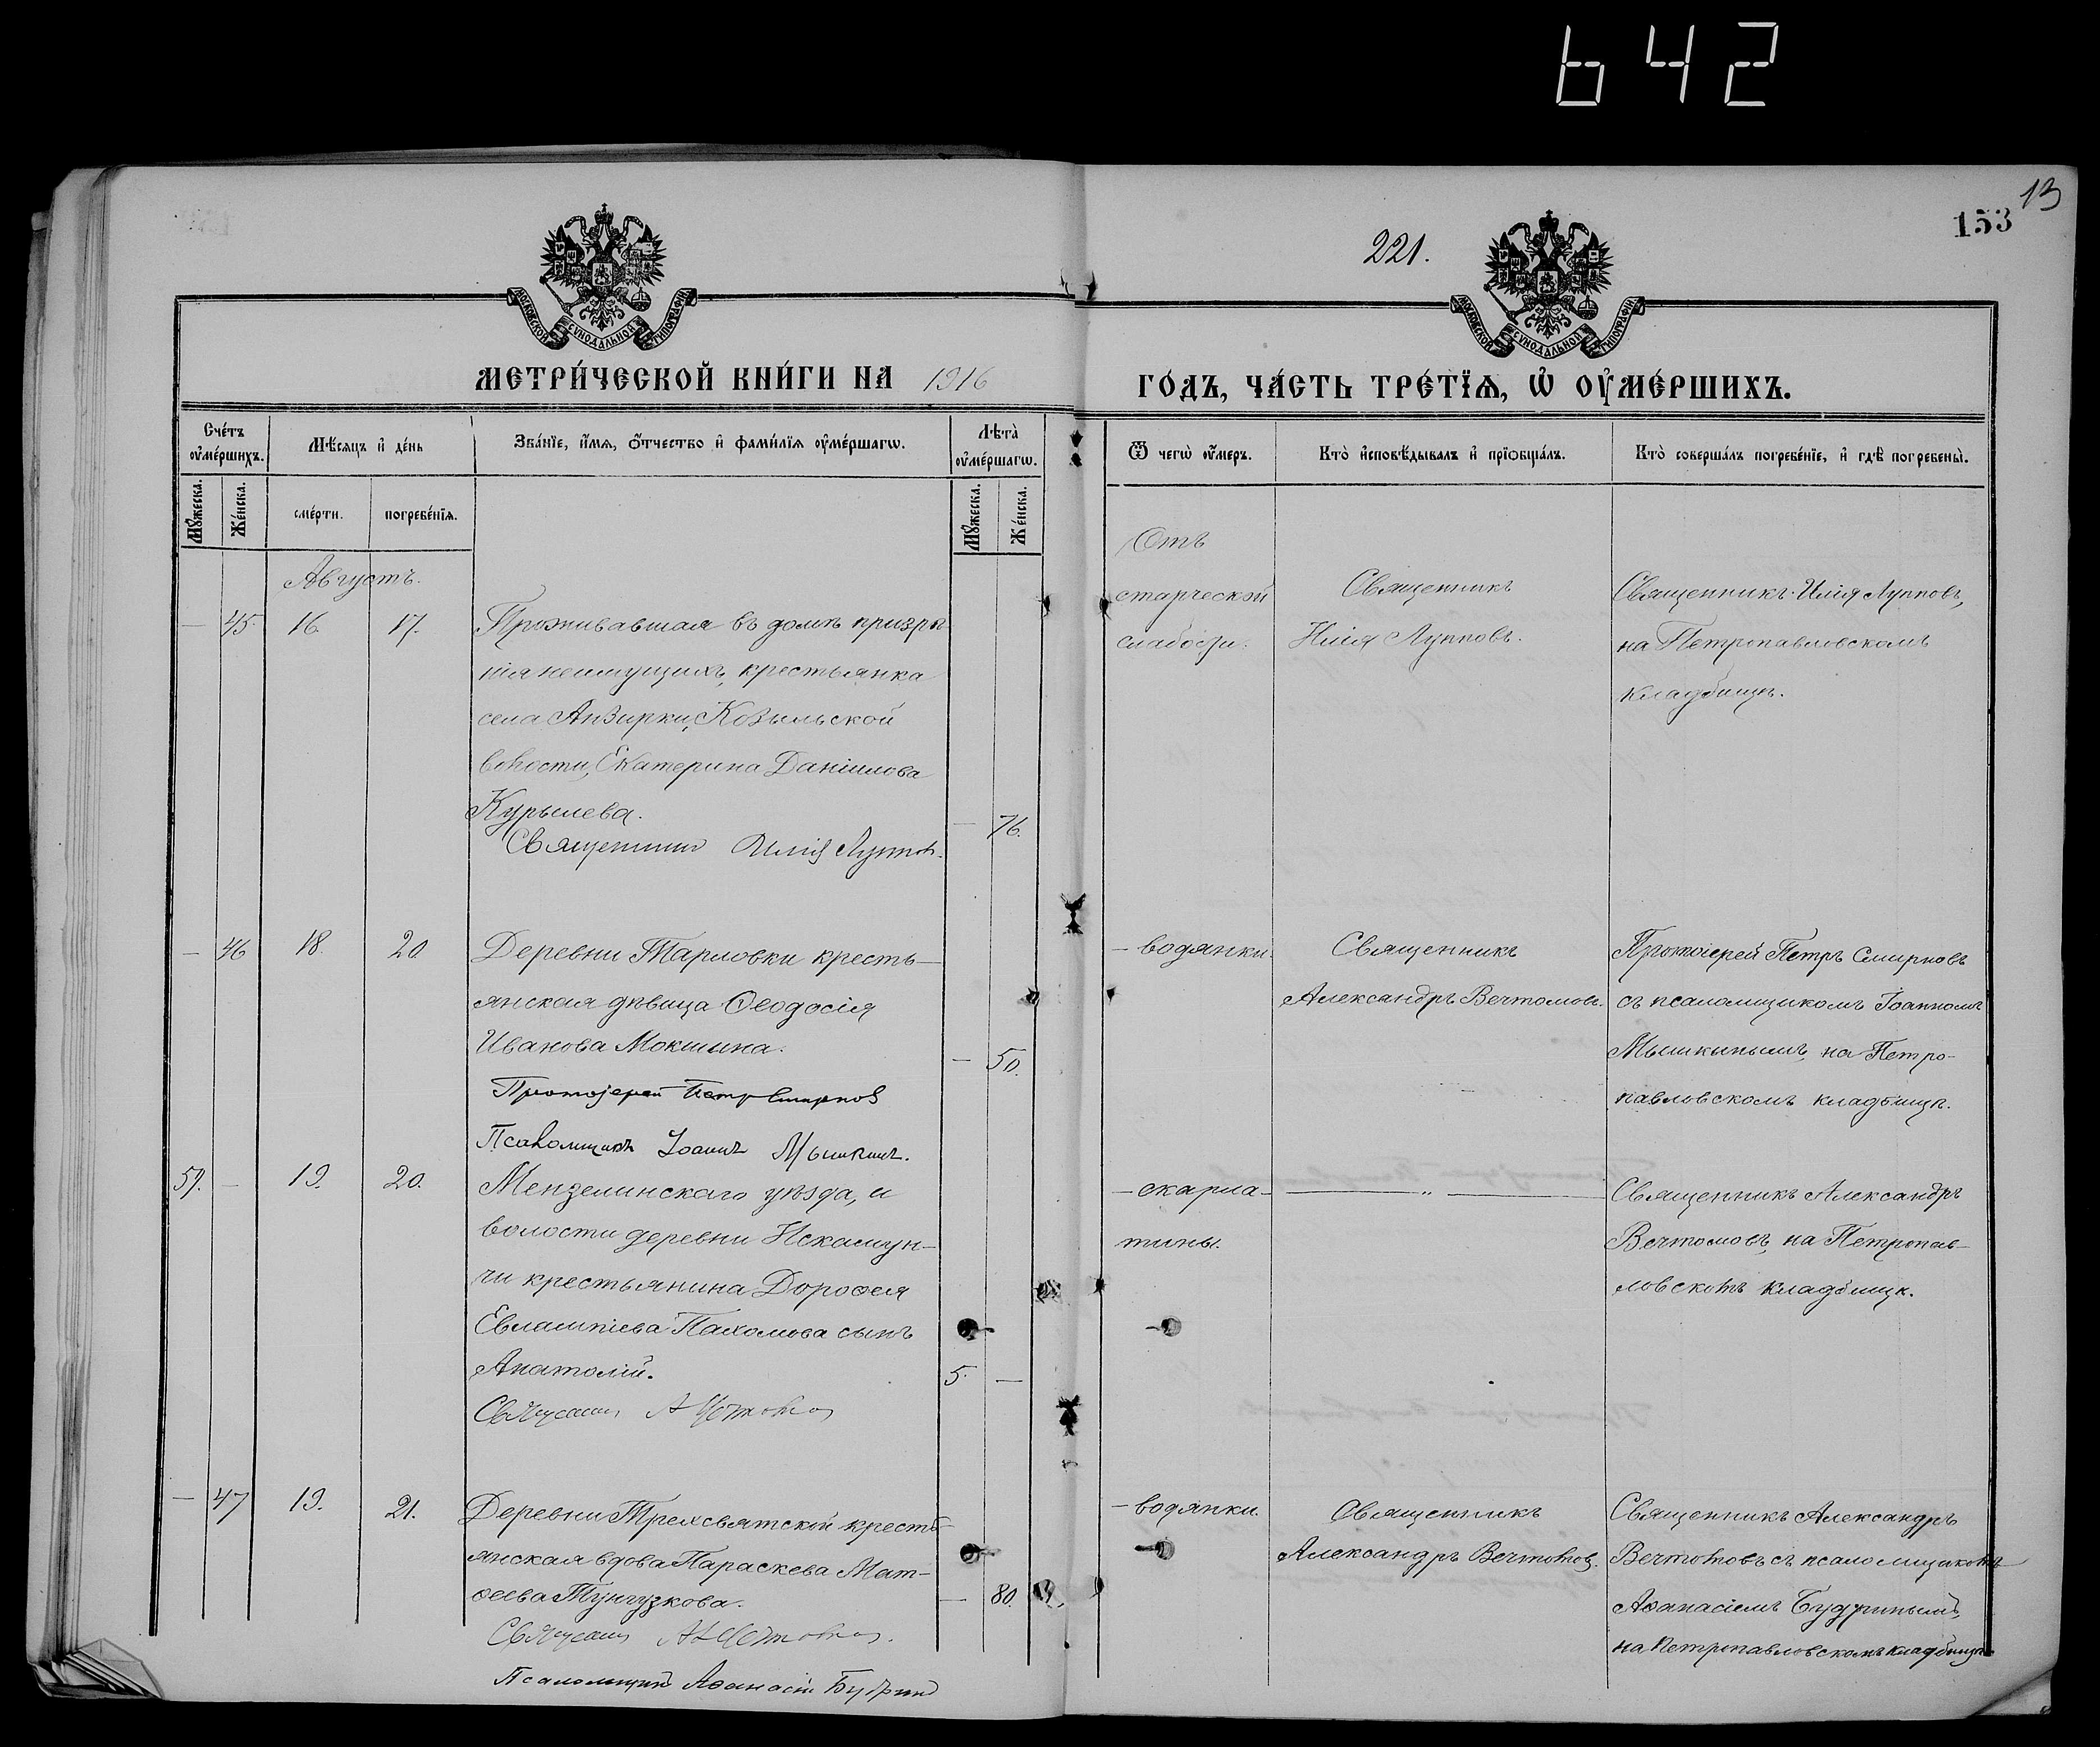 642
13
153
221.
МОСКОВСКОЙ СѴНОДАЛЬНОЙ ТИПОГРАФІИ
МОСКОВСКОЙ СѴНОДАЛЬНОЙ ТИПОГРАФІИ
МЕТРИ́ЧЕСКОЙ КНИ́ГИ НА 1916 ГО́ДЪ, ЧА́СТЬ ТРЕ́ТЇѦ, Ѡ҆ ОУ҆МЕ́РШИХЪ.
Сче́тъ оу҆ме́ршихъ.
Мѣ́сѧцъ и҆ де́нь
Зва́нїе, и҆́мѧ, ѻ҆́тчество и҆ фами́лїѧ оу҆ме́ршагѡ.
Лѣта̀ оу҆ме́ршагѡ.
Ѿ чегѡ̀ оу҆́меръ.
Кто̀ и҆сповѣ́дывалъ и҆ прїѡбща́лъ.
Кто̀ соверша́лъ погребе́нїе, и҆ гдѣ̀ погребены̀.
Мꙋ́жеска.
Же́нска.
сме́рти.
погребе́нїѧ.
Мꙋ́жеска.
Же́нска.
Августъ.
— 45. 16. 17.
Проживавшая въ домѣ призрѣ
нія неимущихъ, крестьянка
села Анзирки, Козыльской
волости, Екатерина Даніилова
Курылева.
— 76.
Священникъ Илія Лупповъ.
Отъ
старческой
слабости.
Священникъ
Илія Лупповъ.
Священникъ Илія Лупповъ,
на Петропавловскомъ
кладбищѣ.
— 46 18. 20
Деревни Тарловки кресть—
янская дѣвица Ѳеодосія
Иванова Мокшина.
— 50.
Протоіерей Петръ Смирновъ
Псаломщикъ Іоаннъ Мышкинъ.
— водянки.
Священникъ
Александръ Вечтомовъ.
Протоіерей Петръ Смирновъ
съ псаломщикомъ Іоанномъ
Мышкинымъ, на Петро-
павловскомъ кладбищѣ.
59. — 19. 20.
Мензелинскаго уѣзда, и
волости деревни Искамун—
чи крестьянина Дороѳея
Евлампіева Пахомова сынъ
Анатолій.
5. —
— скарла-
тины.
— „ —
Священникъ Александръ
Вечтомовъ, на Петропав—
ловскомъ кладбищѣ.
— 47 19. 21.
Деревни Трехсвятской кресть—
янская вдова Параскева Мат—
ѳеева Тунгузкова.
— 80.
Псаломщикъ Аѳанасій Будринъ
— водянки.
Священникъ
Александръ Вечтомовъ.
Священникъ Александръ
Вечтомовъ съ псаломщикомъ
Аѳанасіемъ Будринымъ,
на Петропавловскомъ кладбищѣ.